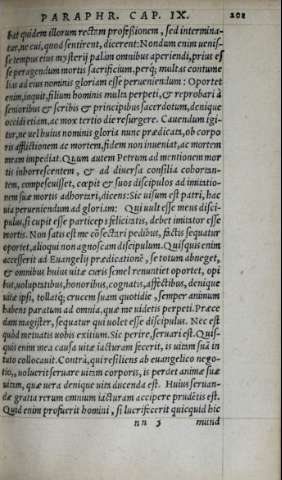 PARAPHR. CAP. IX. 201
bat quidem illorum rectam professionem, sed intermina-
tur, ne cui, quod sentirent, dicerent: Nondum enim uenis-
se tempus eius mysterij palàm omnibus aperiendi, prius es
se peragendum mortis sacrificium, perq́; multas contume
lias ad eius nominis gloriam esse perueniendum: Oportet
enim, inquit, filium hominis multa perpeti, & reprobari à
senioribus & scribis & principibus sacerdotum, denique
occidi etiam, ac mox tertio die resurgere. Cauendum igi-
tur, ne uel huius nominis gloria nunc prædicata, ob corpo
ris afflictionem ac mortem, fidem non inueniat, ac mortem
meam impediat. Quum autem Petrum ad mentionem mor
tis inhorrescentem, & ad diuersa consilia cohortan-
tem, compescuisset, cœpit & suos discipulos ad imitatio-
nem suæ mortis adhortari, dicens: Sic uisum est patri, hac
uia perueniendum ad gloriam: Qui uult esse meus disci-
pulus, si cupit esse particeps felicitatis, debet imitator esse
mortis. Non satis est me cōsectari pedibus, factis sequatur
oportet, alioqui non agnoscam discipulum. Quisquis enim
accesserit ad Euangelij prædicationē, se totum abneget,
& omnibus huius uitæ curis semel renuntiet oportet, opi
bus, uoluptatibus, honoribus, cognatis, affectibus, denique
uitæ ipsi, tollatq́; crucem suam quotidie, semper animum
habens paratum ad omnia, quæ me uidetis perpeti. Præce
dam magister, sequatur qui uolet esse discipulus. Nec est
quòd metuatis uobis exitium. Sic perire, seruari est. Quis-
quis enim mea causa uitæ iacturam fecerit, is uitam suā in
tuto collocauit. Contrà, qui resiliens ab euangelico nego-
tio, uoluerit seruare uitam corporis, is perdet animæ suæ
uitam, quæ uera denique uita ducenda est. Huius seruan-
dæ gratia rerum omnium iacturam accipere prudētis est.
Quid enim profuerit homini, si lucrifecerit quicquid hic
nn 3 mund